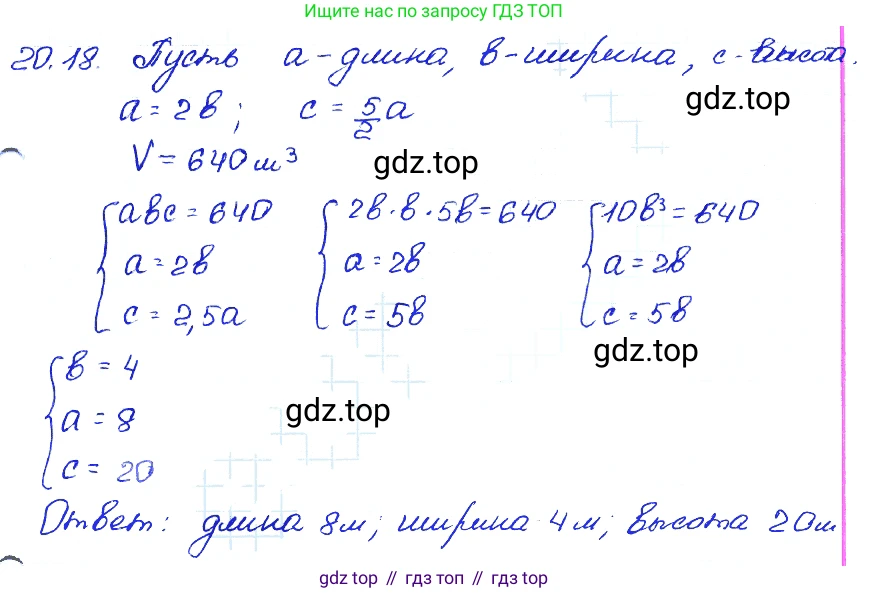 Ищите нас по запросу ГДЗ ТОП
20.18. Пусть a - длина, в - ширина, c - высота.
a = 2в; c = 5/2 a
gdz.top
V = 640 м³
gdz.top
{ aвc = 640 { 2в · в · 5в = 640 { 10в³ = 640
a = 2в a = 2в a = 2в
c = 2,5a c = 5в c = 5в
gdz.top
{ в = 4
a = 8
gdz.top
c = 20
Ответ: длина 8м; ширина 4м; высота 20м
gdz top // гдз топ // gdz top